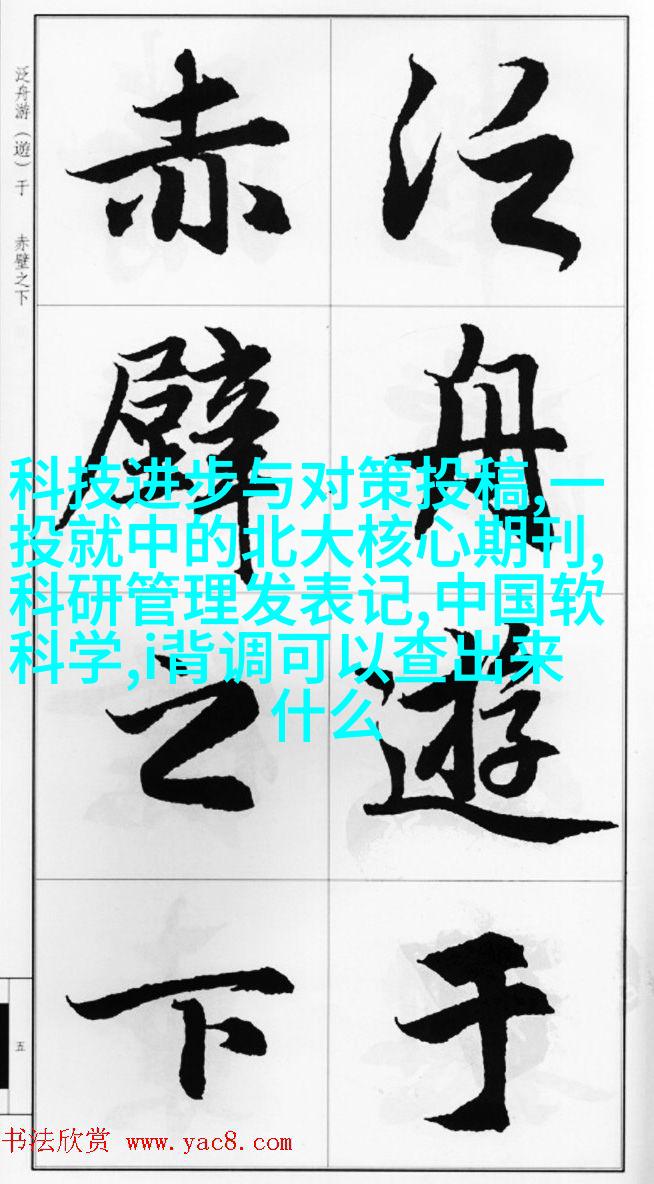 泛舟游（遊）于 赤壁之下
泛舟遊于
赤壁之下
科技进步与对策投稿,一
投就中的北大核心期刊,
科研管理发表记,中国软
科学,i背调可以查出来
什么
五
书法欣赏 www.yac8.com